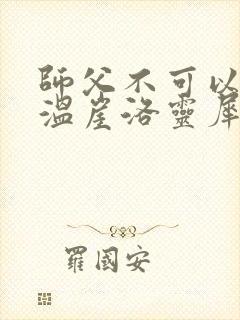 師父不可以
溫崖洛靈犀
羅國安